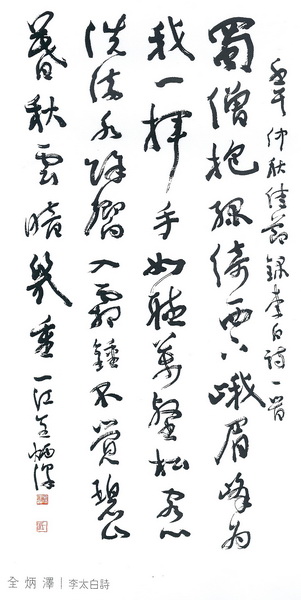 仲秋佳節錄李白詩一首
蜀僧抱綠綺西下峨眉峰為
我一揮手如聽萬壑松客心
洗流水餘響入霜鐘不覺碧山
暮秋雲暗幾重 一江全炳澤
全炳澤｜李太白詩